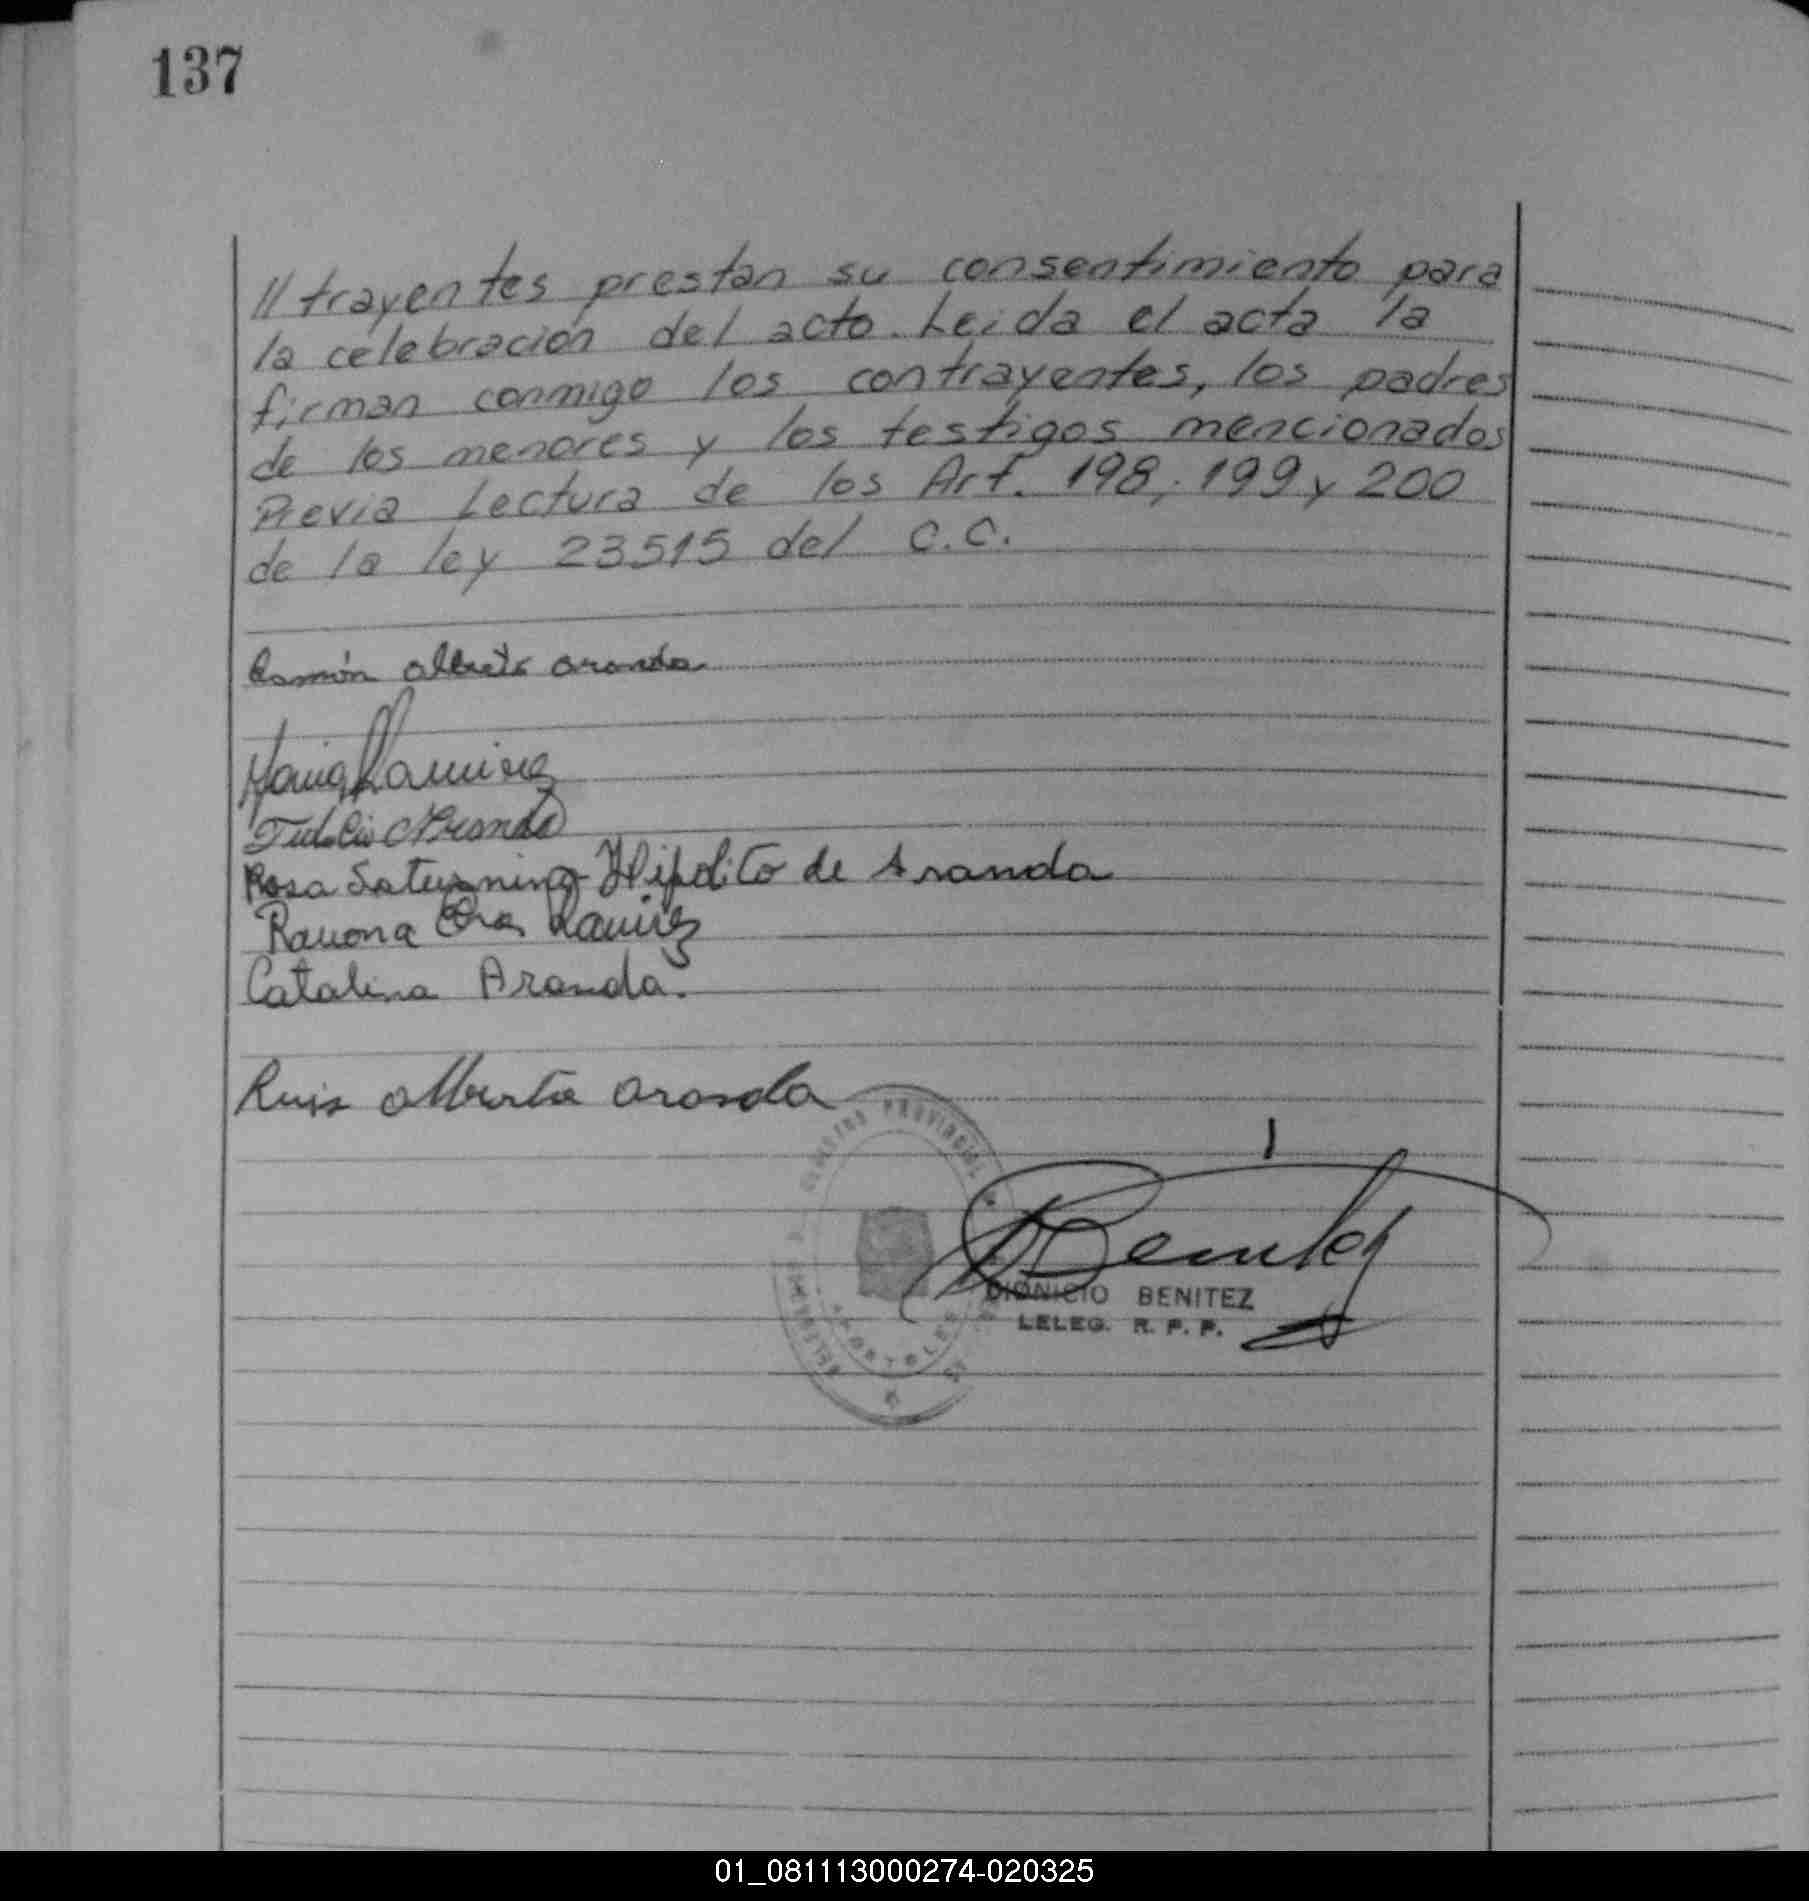 137
// trayentes prestan su consentimiento para
la celebración del acto. Leida el acta la
firman conmigo los contrayentes, los padres
de los menores y los testigos mencionados
Previa Lectura de los Art. 198, 199 y 200
de la ley 23515 del C.C.
Ramón Alberto Aranda
Maria Ramirez
Aranda
Rosa Saturnina Hipolito de Aranda
Ramona Ramirez
Catalina Aranda.
Luis Alberto Aranda
PROVINCIAL
APOSTOLES
Benitez
DIONICIO BENITEZ
LELEG. R. P. P.
01_081113000274-020325